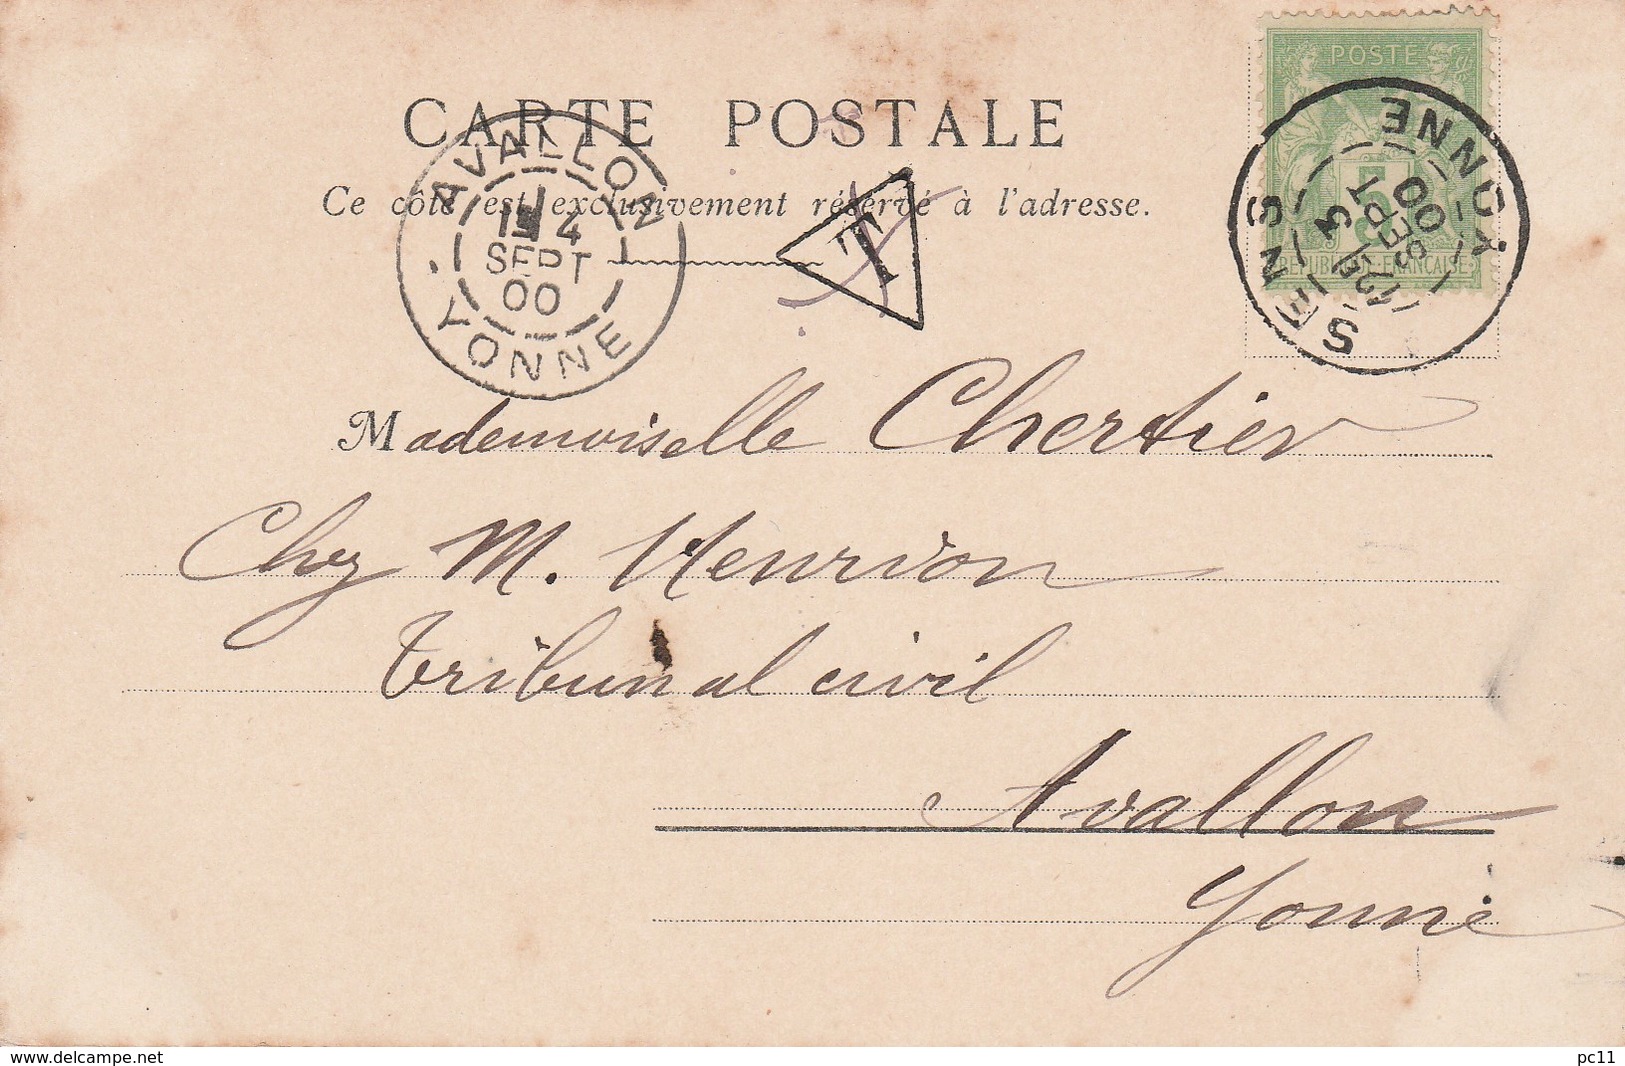 CARTE POSTALE
Ce côté est exclusivement réservé à l'adresse.
POSTE
5
REPUBLIQUE FRANCAISE
SENS
YONNE
3
SEPT
00
AVALLON
4
SEPT
00
YONNE
T
Mademoiselle Chertier
Chez M. Henrion
Tribunal civil
Avallon
Yonne
www.delcampe.net
pc11